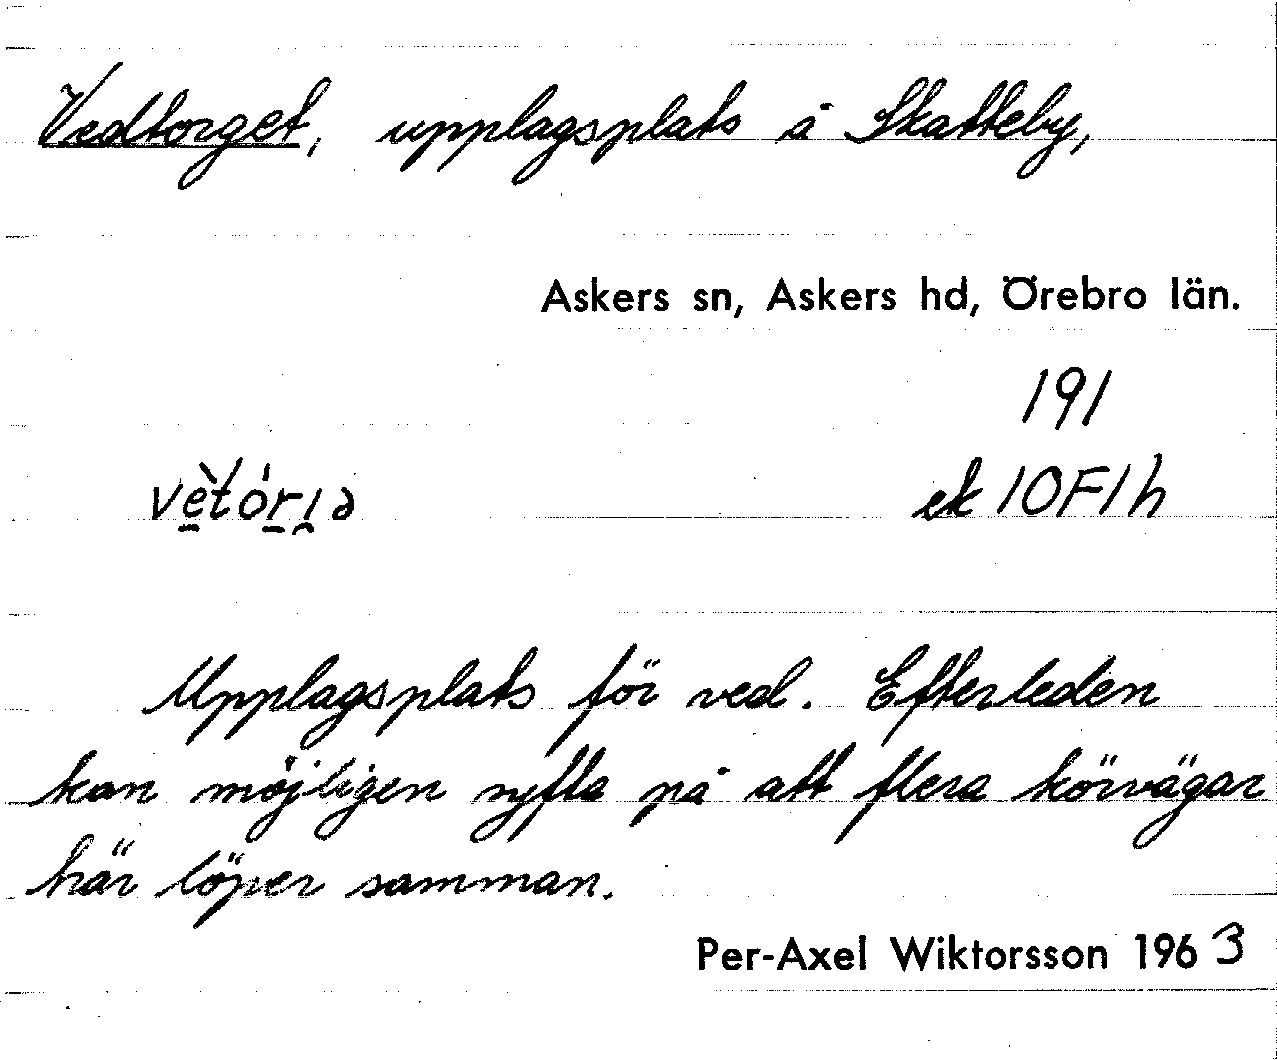 Vedtorget, upplagsplats å Skatteby,
Askers sn, Askers hd, Örebro län.
191
ek 10F1h
Upplagsplats för ved. Efterleden
kan möjligen syfta på att flera körvägar
här löper samman.
Per-Axel Wiktorsson 1963